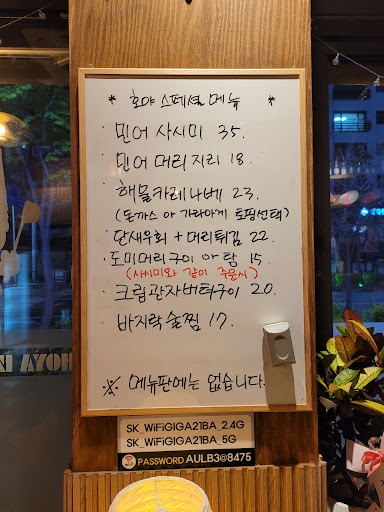 * 호야 스페셜 메뉴 *
· 민어 사시미 35.
· 민어 머리 지리 18.
· 해물카레나베 23.
(돈까스 or 가라아게 토핑선택)
· 단새우회 + 머리튀김 22.
· 도미머리구이 or 탕 15.
(사시미와 같이 주문시)
· 크림관자버터구이 20.
· 바지락술찜 17.
※ 메뉴판에는 없습니다.
SK_WiFiGIGA21BA_2.4G
SK_WiFiGIGA21BA_5G
PASSWORD AULB3@8475
HOYA